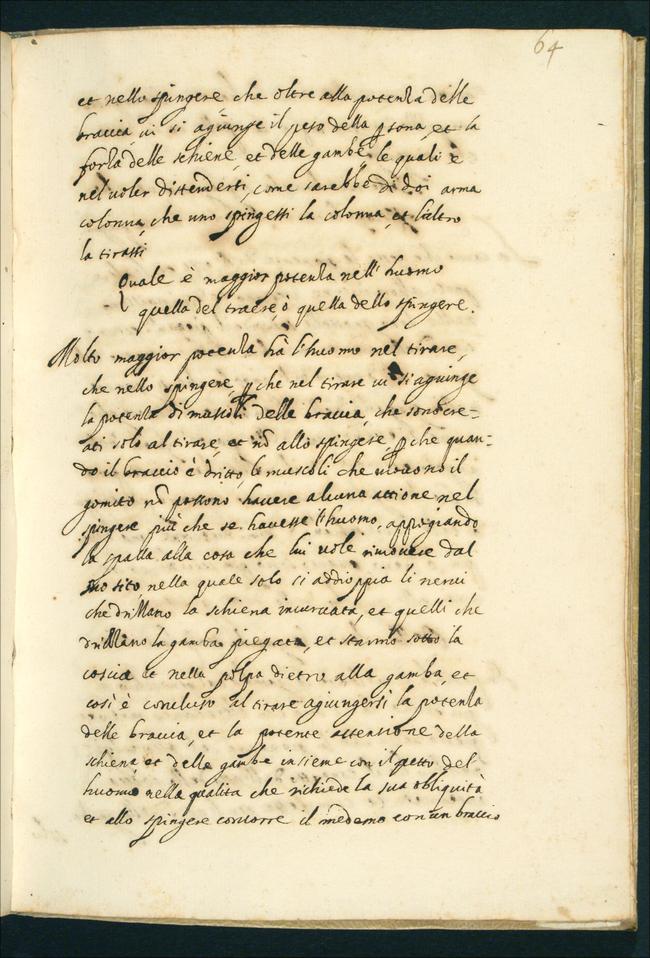 64
et nello spingere, che oltre alla potenza delle
braccia, ui si agiunge il peso della psona, et la
forza delle schiene, et delle gambe, le quali è
nel uoler distendersi, come sarebbe di doi
colonna, che uno spingessi la colonna, et l'altro
la tirassi
Quale è maggior potenza nell' huomo
quella del traere, ò quella dello spingere.
Molto maggior potenza hà l'huomo nel tirare,
che nello spingere, p che nel tirare ui si agiunge
la potenza di muscoli delle braccia, che sono cre-
ati solo al tirare, et nō allo spingere, p che quan-
do il braccio è dritto, le muscoli che muouono il
gomito nō possono hauere alcuna attione nel
spingere più che se hauesse l'huomo, appogiando
la spalla alla cosa che lui uole rimouere dal
suo sito, nella quale solo ci addioppia li nerui
che drizzano la schiena incuruata, et quelli che
drizzano la gamba piegata, et stanno sotto la
coscia et nella polpa dietro alla gamba, et
cosi è concluso al tirare agiungersi la potenza
delle braccia, et la potente attensione della
schiena et delle gambe insieme con il petto del
huomo nella qualita che richiede la sua obliquità
et allo spingere concorre il medemo con un braccio